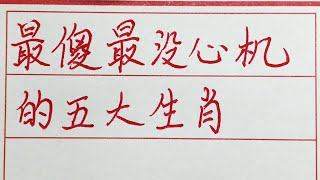 最傻最没心机
的五大生肖